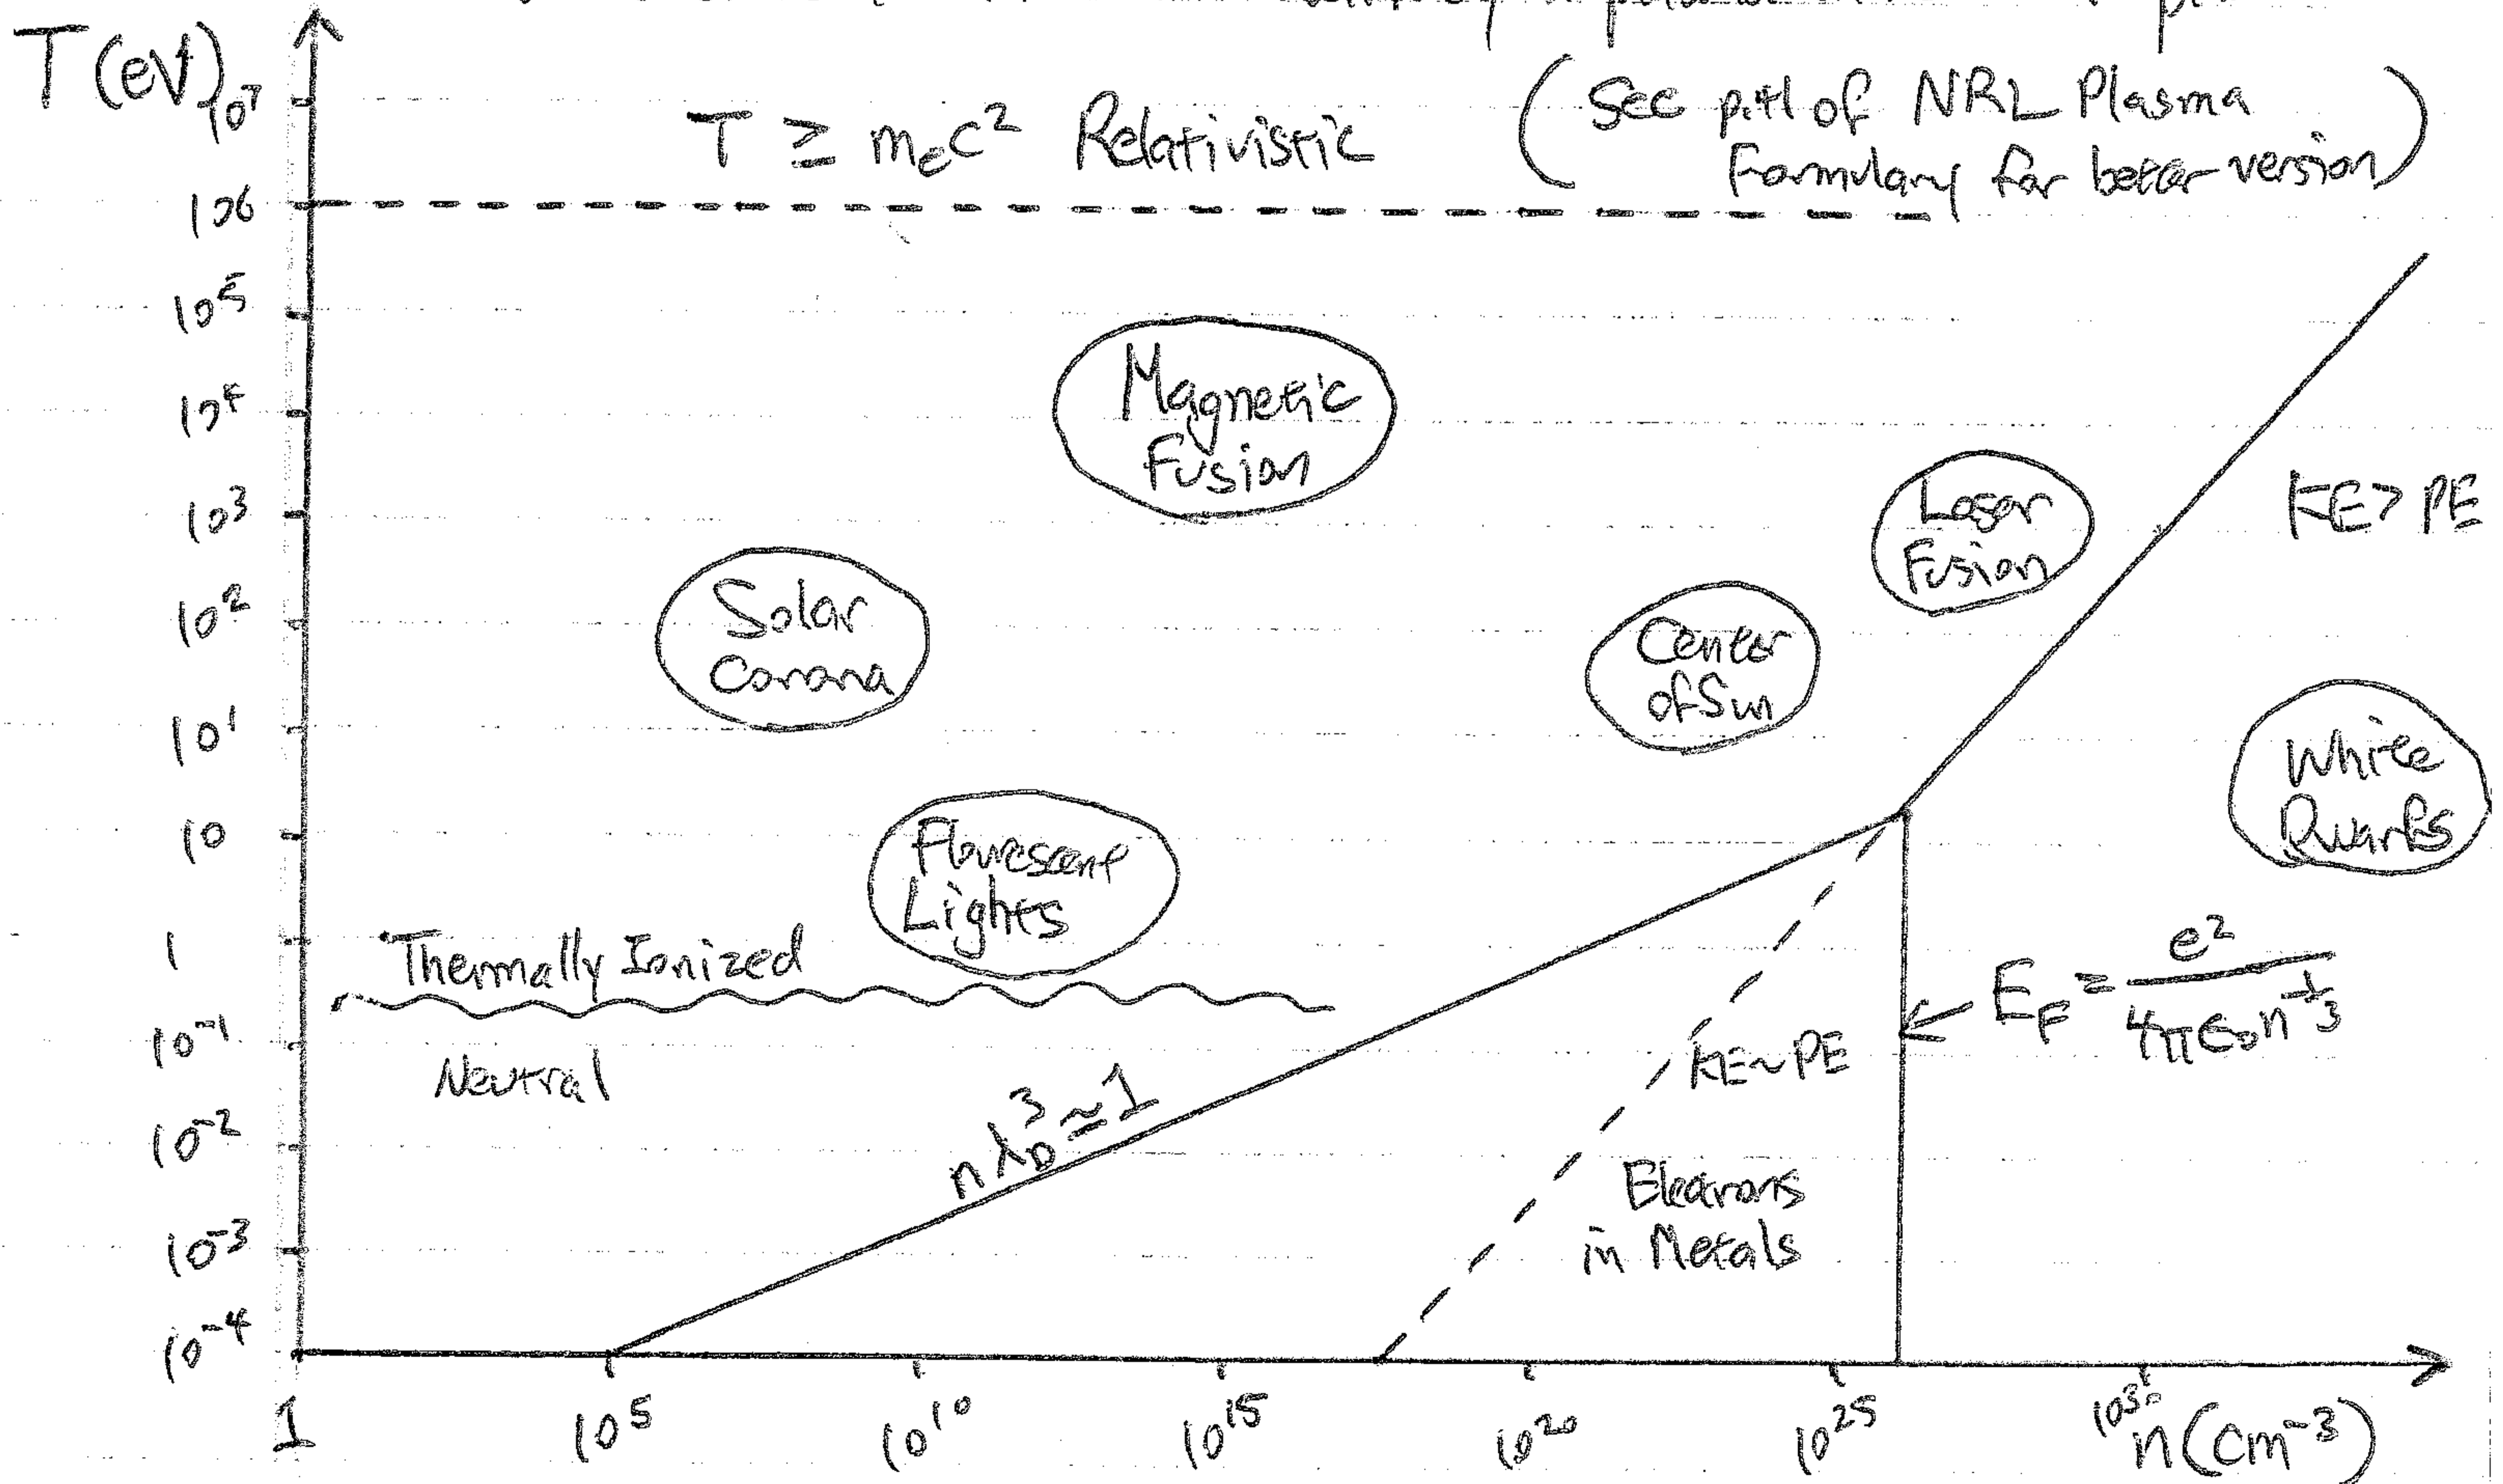 T (eV)
T ≥ mₑc² Relativistic
(See p.41 of NRL Plasma
Formulary for better version)
10⁷
10⁶
10⁵
10⁴
10³
10²
10¹
10
1
10⁻¹
10⁻²
10⁻³
10⁻⁴
Magnetic
Fusion
Laser
Fusion
KE > PE
Solar
Corona
Center
of Sun
White
Dwarfs
Flourescent
Lights
Thermally Ionized
Neutral
nλ_D³ ≃ 1
KE ~ PE
E_F = e² / 4πε₀n^(-1/3)
Electrons
in Metals
1
10⁵
10¹⁰
10¹⁵
10²⁰
10²⁵
10³⁰
n (cm⁻³)